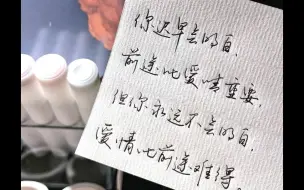 你迟早会明白，
前途比爱情重要，
但你永远不会明白，
爱情比前途难得。